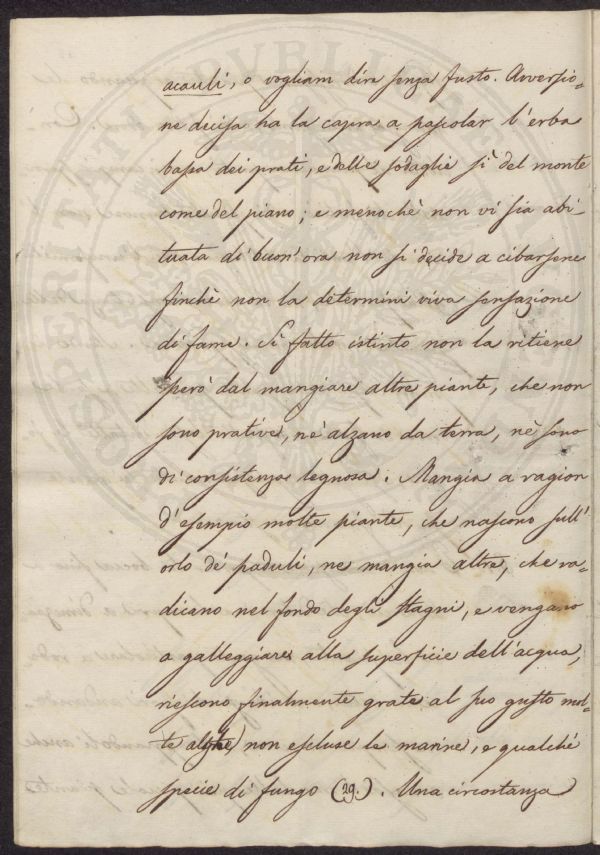 acauli, o vogliam dire senza fusto. Avversio-
ne decisa ha la capra a pascolar l'erba
bassa dei prati, e delle sodaglie sì del monte
come del piano; e menochè non vi sia abi-
tuata di buon'ora non si decide a cibarsene
finchè non la determini viva sensazione
di fame. Sì fatto istinto non la ritiene
però dal mangiare altre piante, che non
sono prative, nè alzano da terra, nè sono
di consistenza legnosa. Mangia a ragion
d'esempio molte piante, che nascono sull'
orlo de' paduli, ne mangia altre, che ra-
dicano nel fondo degli stagni, e vengano
a galleggiare alla superficie dell'acqua;
riescono finalmente grate al suo gusto mol-
te alghe, non escluse le marine, e qualche
specie di fungo (29.). Una circostanza